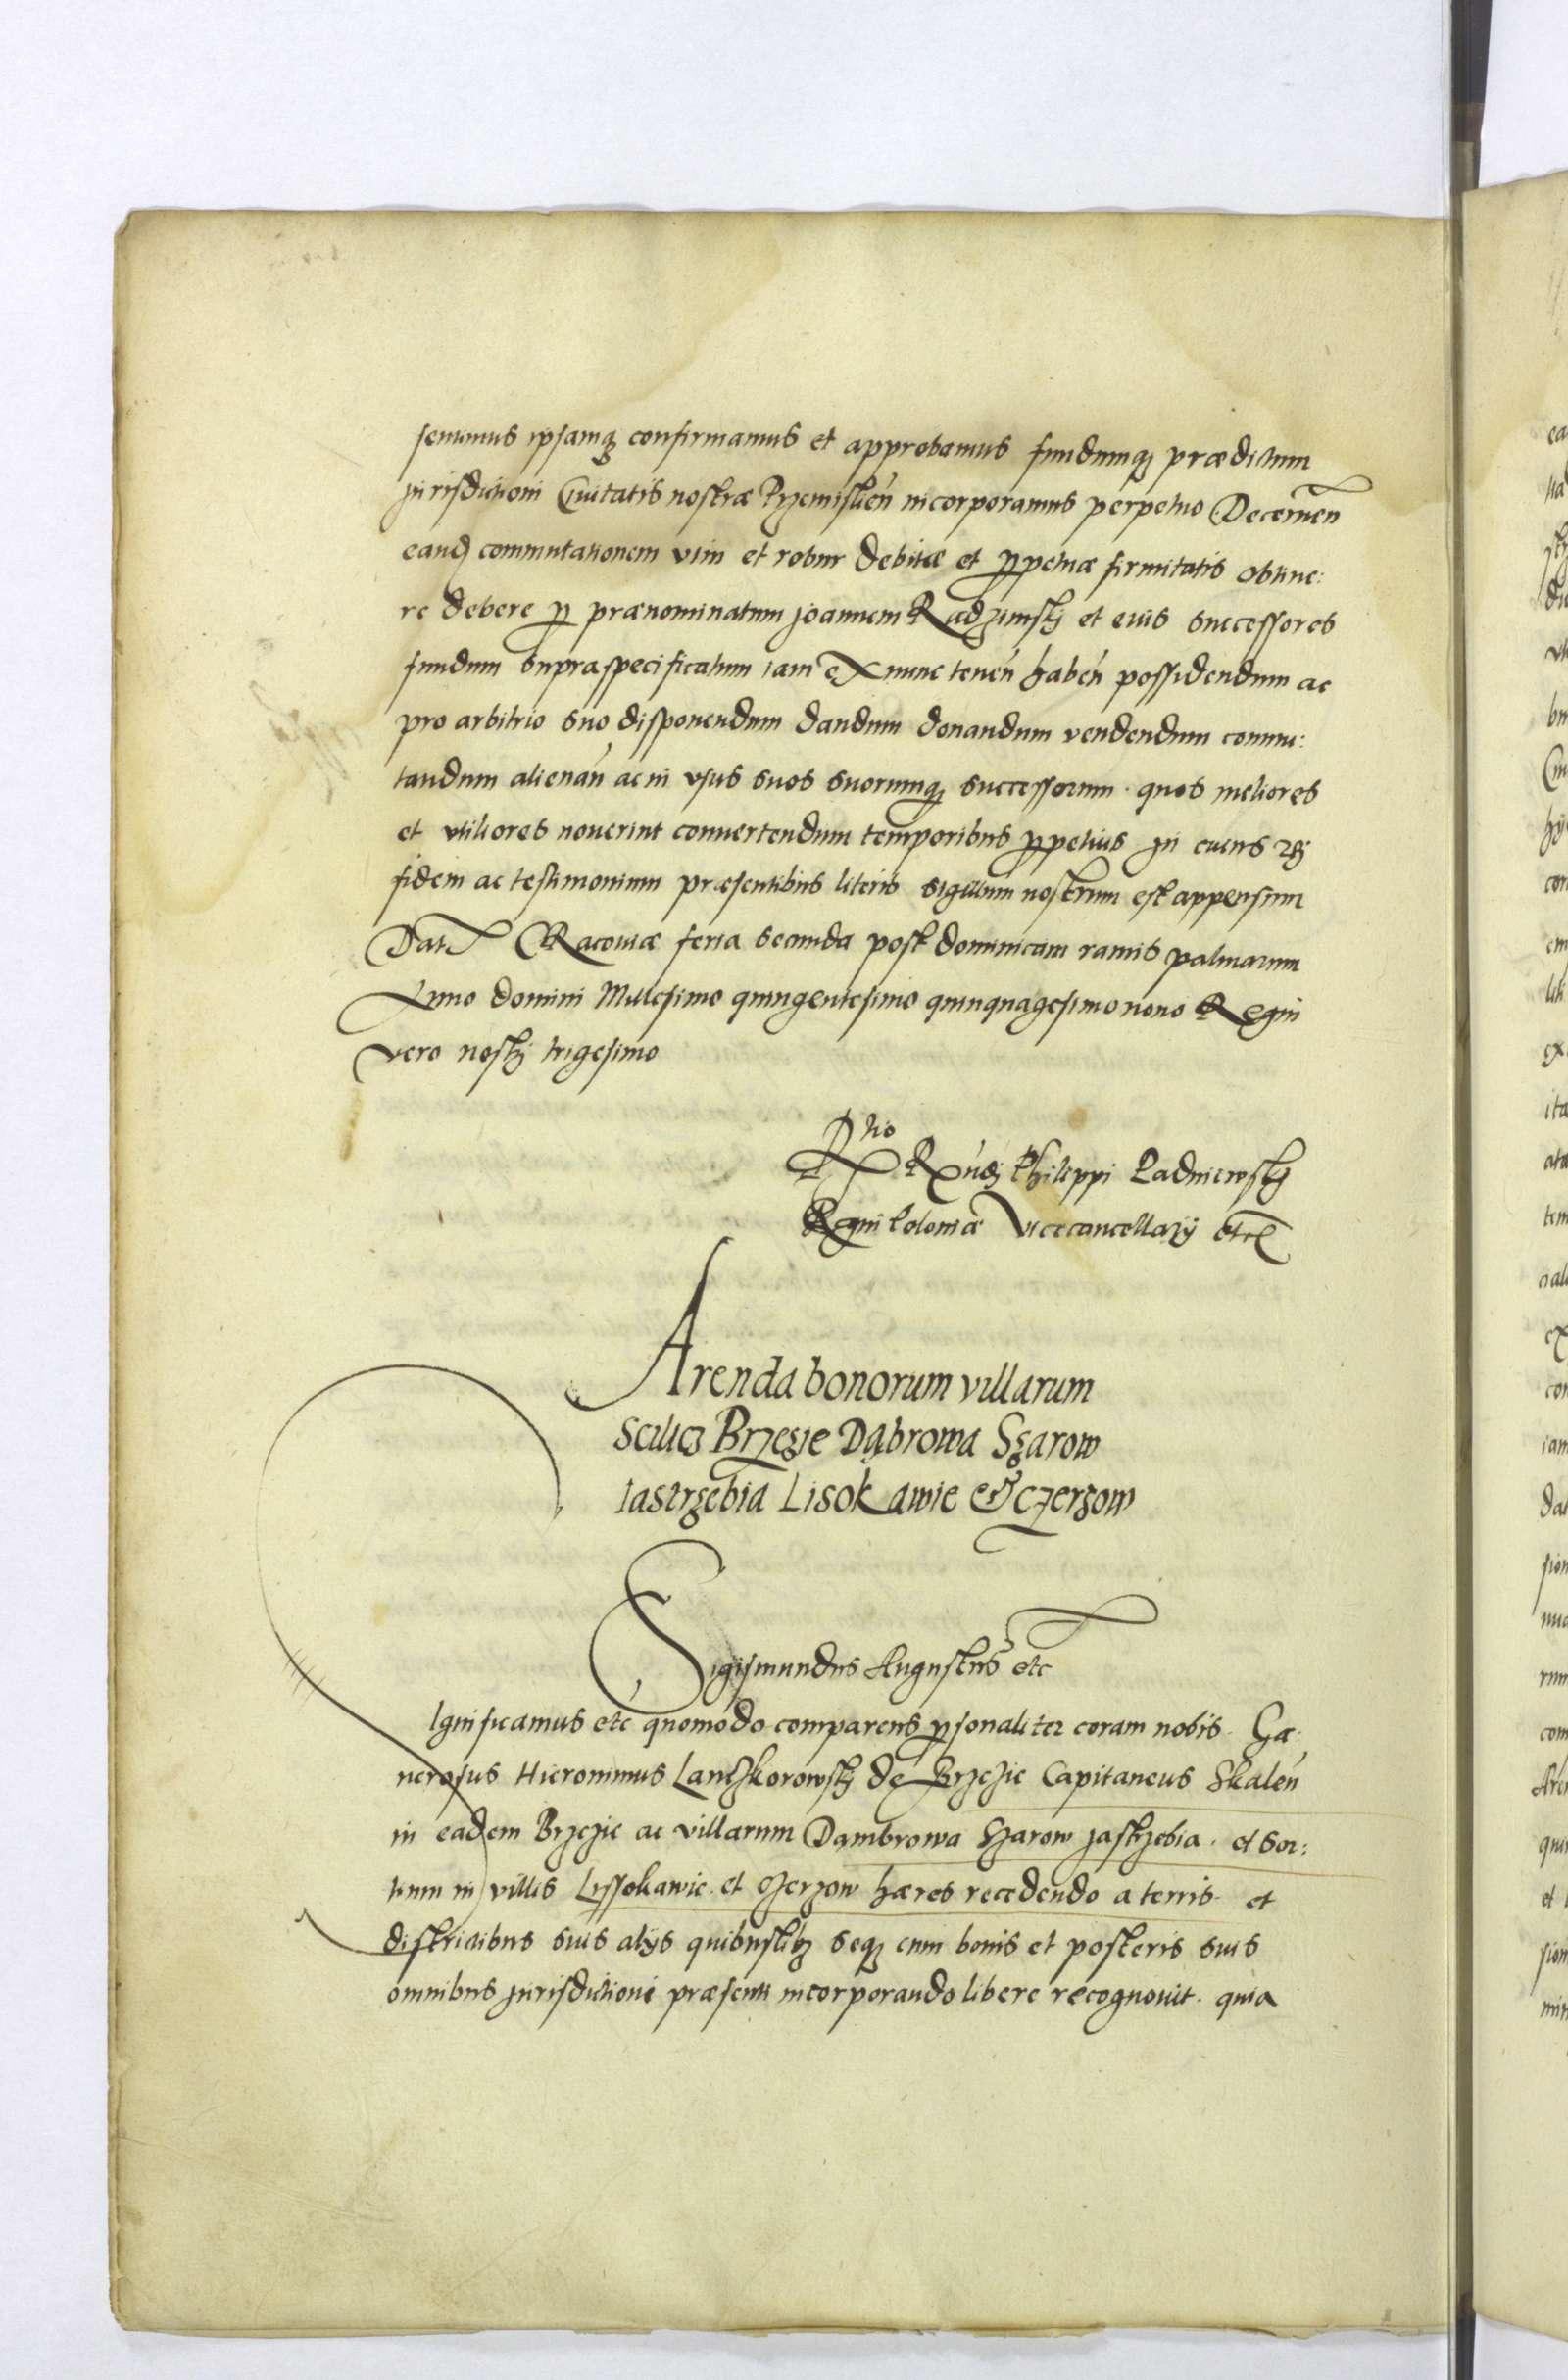 sentimus ipsamq confirmamus et approbamus fundumq prædictum
jurisdictioni Civitatis nostræ Przemislien incorporamus perpetuo Decernen
eand commutationem vim et robur debitæ et ppetuæ firmitatis obtine:
re debere p prænominatum joannem Radzimskj et eius successores
fundum supraspecificatum iam ex nunc tenen haben possidendum ac
pro arbitrio suo disponendum dandum donandum vendendum commu:
tandum alienan ac in vsus suos suorumq successorum quos meliores
et vtiliores noverint convertendum temporibus ppetuis jn cuius rei
fidem ac testimonium præsentibus literis sigillum nostrum est appensum
Dat Cracoviæ feria secunda post dominicam ramis palmarum
Anno domini Millesimo quingentesimo quinquagesimo nono Regni
vero nostrj trigesimo
Rtio Rxndj Philippi Padniewskj
Regni Poloniæ Vicecancellarij etc
Arenda bonorum villarum
Scilicz Brzezie Dąbrowa Szarow
Iastrzebia Lisokawie & Czerzow
Sigismundus Augustus etc
Ignificamus etc quomodo comparens psonaliter coram nobis Gæ:
nerosus Hieronimus Lanczkorowskj de Brzezie Capitaneus Skalen
in eadem Brzezie ac villarum Dambrowa Szarow jastrzebia et sor:
tium in villis Lyssokawie et Czerzow hæres recedendo a terris et
districtibus suis alijs quibuslibz seq cum bonis et posteris suis
omnibus jurisdictioni præsenti incorporando libere recognovit quia